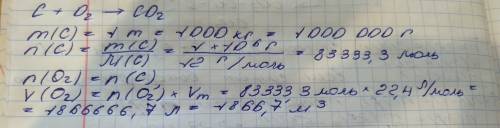 C + O₂ → CO₂
m(C) = 1 т = 1000 кг = 1 000 000 г
n(C) = m(C)/M(C) = 1*10⁶ г/12 г/моль = 83333,3 моль
n(O₂) = n(C)
V(O₂) = n(O₂) * Vm = 83333,3 моль * 22,4 л/моль =
= 1866666,7 л = 1866,7 м³